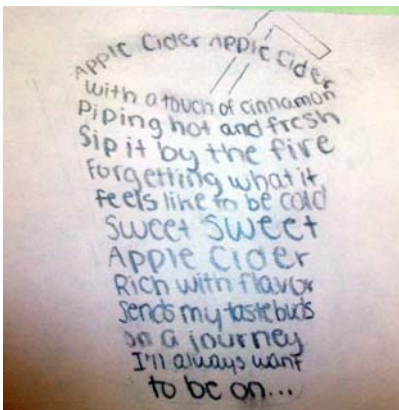 APPLE Cider APPLE Cider
with a touch of cinnamon
Piping hot and fresh
Sip it by the fire
Forgetting what it
feels like to be cold
Sweet Sweet
APPLE Cider
Rich with flavor
Sends my tastebuds
on a journey
I'll always want
to be on...